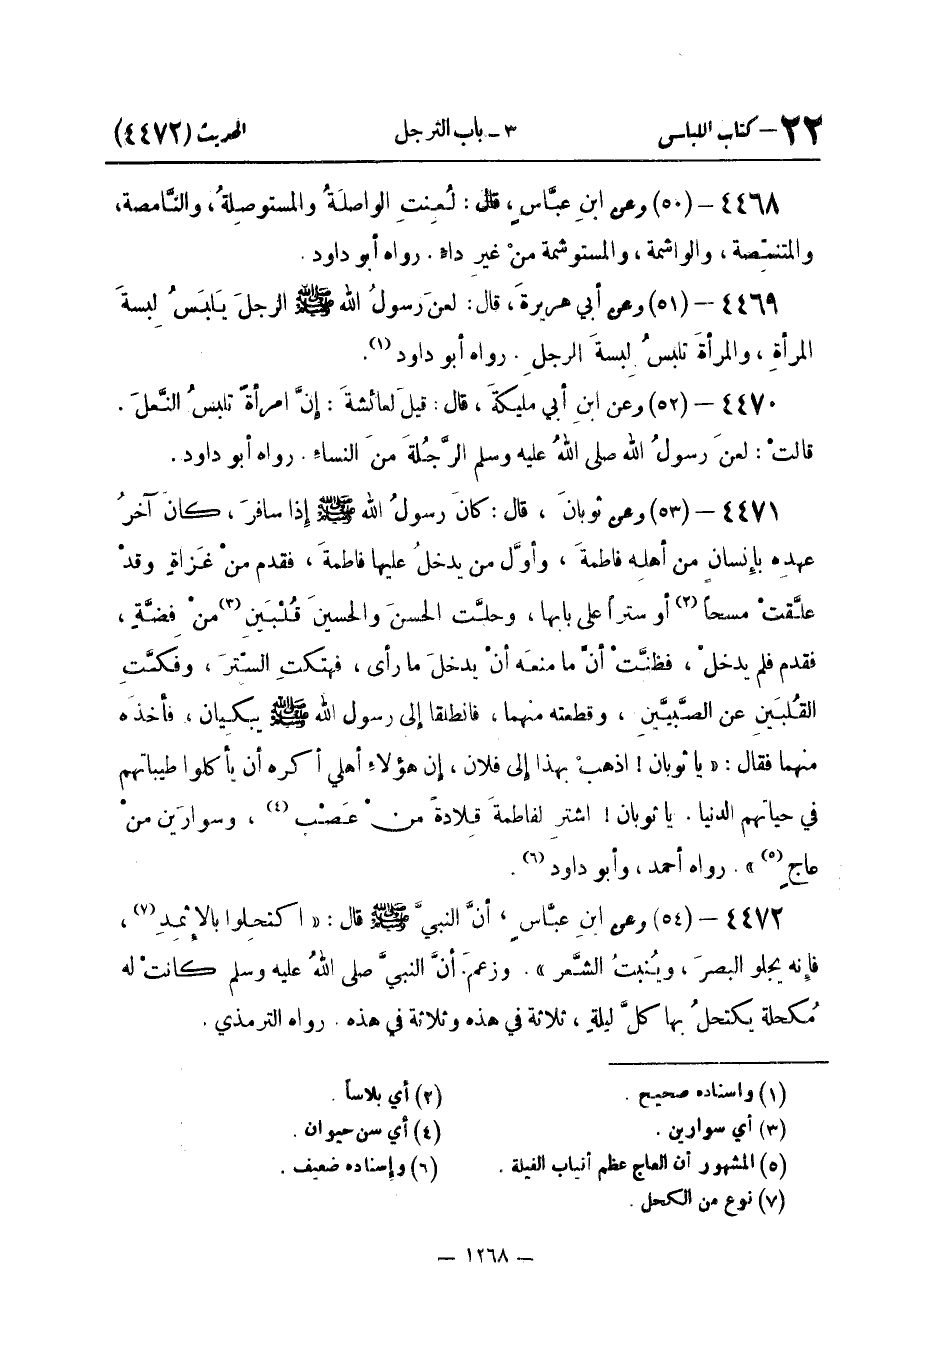 ٢٢ – كتاب اللباس ٣ – باب الترجل الحديث (٤٤٧٢)
٤٤٦٨ – (٥٠) وعن ابنِ عبَّاسٍ، قال: لُعِنتِ الواصلةُ والمستوصِلةُ، والنَّامصة،
والمتنمّصة، والواشمة، والمستوشمة منْ غيرِ داءٍ. رواه أبو داود.
٤٤٦٩ – (٥١) وعن أبي هريرةَ، قال: لعنَ رسولُ الله ﷺ الرجلَ يَلبَسُ لِبسةَ
المرأةِ، والمرأةَ تلبسُ لِبسةَ الرجلِ. رواه أبو داود (١).
٤٤٧٠ – (٥٢) وعن ابنِ أبي مليكةَ، قال: قيلَ لعائشةَ: إنَّ امرأةً تلبسُ النَّعلَ.
قالتْ: لعنَ رسولُ الله صلى اللهُ عليه وسلم الرَّجُلةَ منَ النساءِ. رواه أبو داود.
٤٤٧١ – (٥٣) وعن ثوبانَ، قال: كانَ رسولُ الله ﷺ إذا سافرَ، كانَ آخرُ
عهدِه بإنسانٍ من أهلِه فاطمةَ، وأوَّل من يدخلُ عليها فاطمةَ، فقدم منْ غَزاةٍ وقدْ
علَّقتْ مسحاً (٢) أو ستراً على بابها، وحلَّت الحسنَ والحسينَ قُلْبَينِ (٣) منْ فِضَّةٍ،
فقدم فلم يدخلْ، فظنَّتْ أنَّ ما منعَه أنْ يدخلَ ما رأى، فهتكتِ السّترَ، وفكَّتِ
القُلبَينِ عن الصَّبيَّينِ، وقطعته منهما، فانطلقا إلى رسول الله ﷺ يبكيان، فأخذَه
منهما فقال: «يا ثوبان! اذهبْ بهذا إلى فلان، إن هؤلاءِ أهلي أكره أن يأكلوا طيباتهم
في حياتهم الدنيا. يا ثوبان! اشترِ لفاطمةَ قِلادةً منْ عَصْبٍ (٤)، وسوارَين منْ
عاجٍ (٥)». رواه أحمد، وأبو داود (٦).
٤٤٧٢ – (٥٤) وعن ابنِ عبَّاسٍ، أنَّ النبيَّ ﷺ قال: «اكتحلوا بالإثمِدِ (٧)،
فإنه يجلو البصرَ، ويُنبتُ الشَّعر». وزعمَ أنَّ النبيَّ صلى اللهُ عليه وسلم كانتْ له
مُكحلة يكتحلُ بها كلَّ ليلةٍ، ثلاثة في هذه وثلاثة في هذه. رواه الترمذي.
(١) واسناده صحيح. (٢) أي بلاساً.
(٣) أي سوارين. (٤) أي سن حيوان.
(٥) المشهور أن العاج عظم أنياب الفيلة. (٦) وإسناده ضعيف.
(٧) نوع من الكحل.
– ١٢٦٨ –